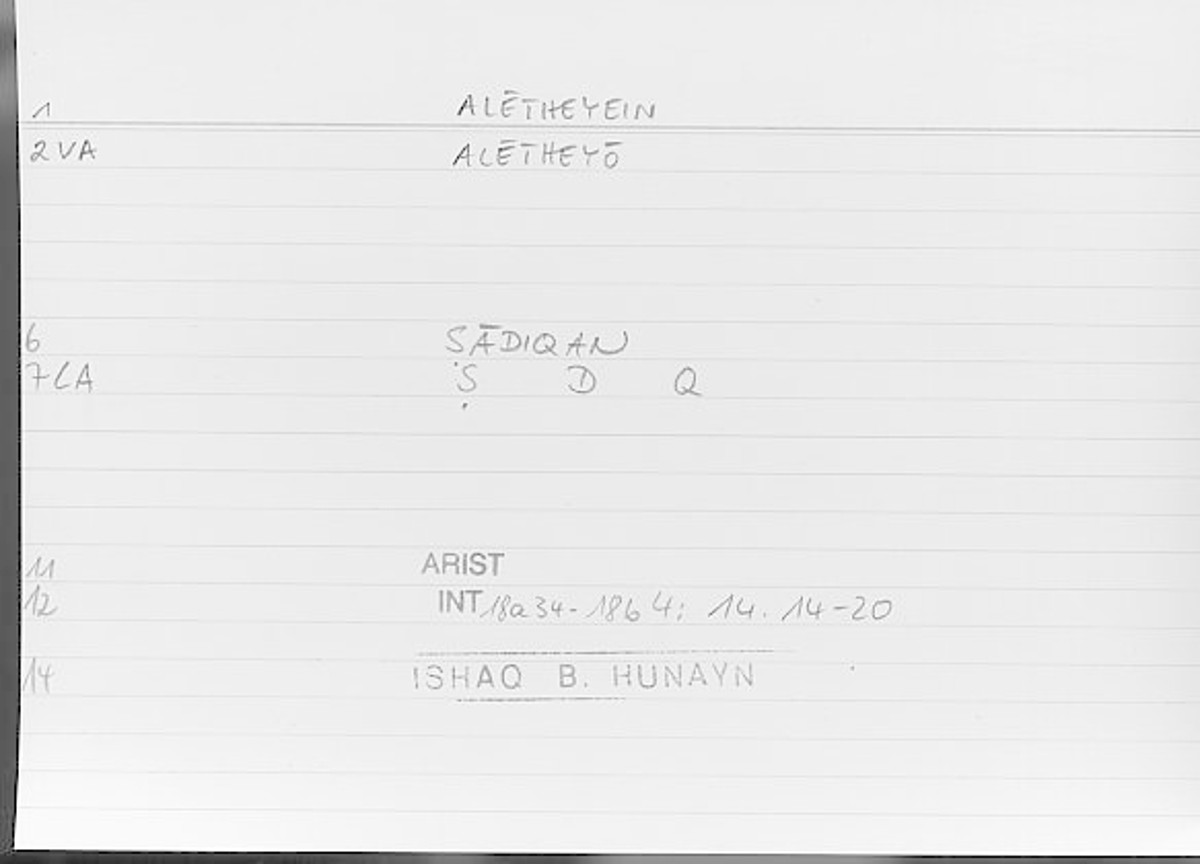 1 ALĒTHEYEIN
2 VA ALĒTHEYŌ
6 ṢĀDIQAN
7 LA Ṣ D Q
11 ARIST
12 INT 18a34-18b4; 14.14-20
14 ISHAQ B. HUNAYN